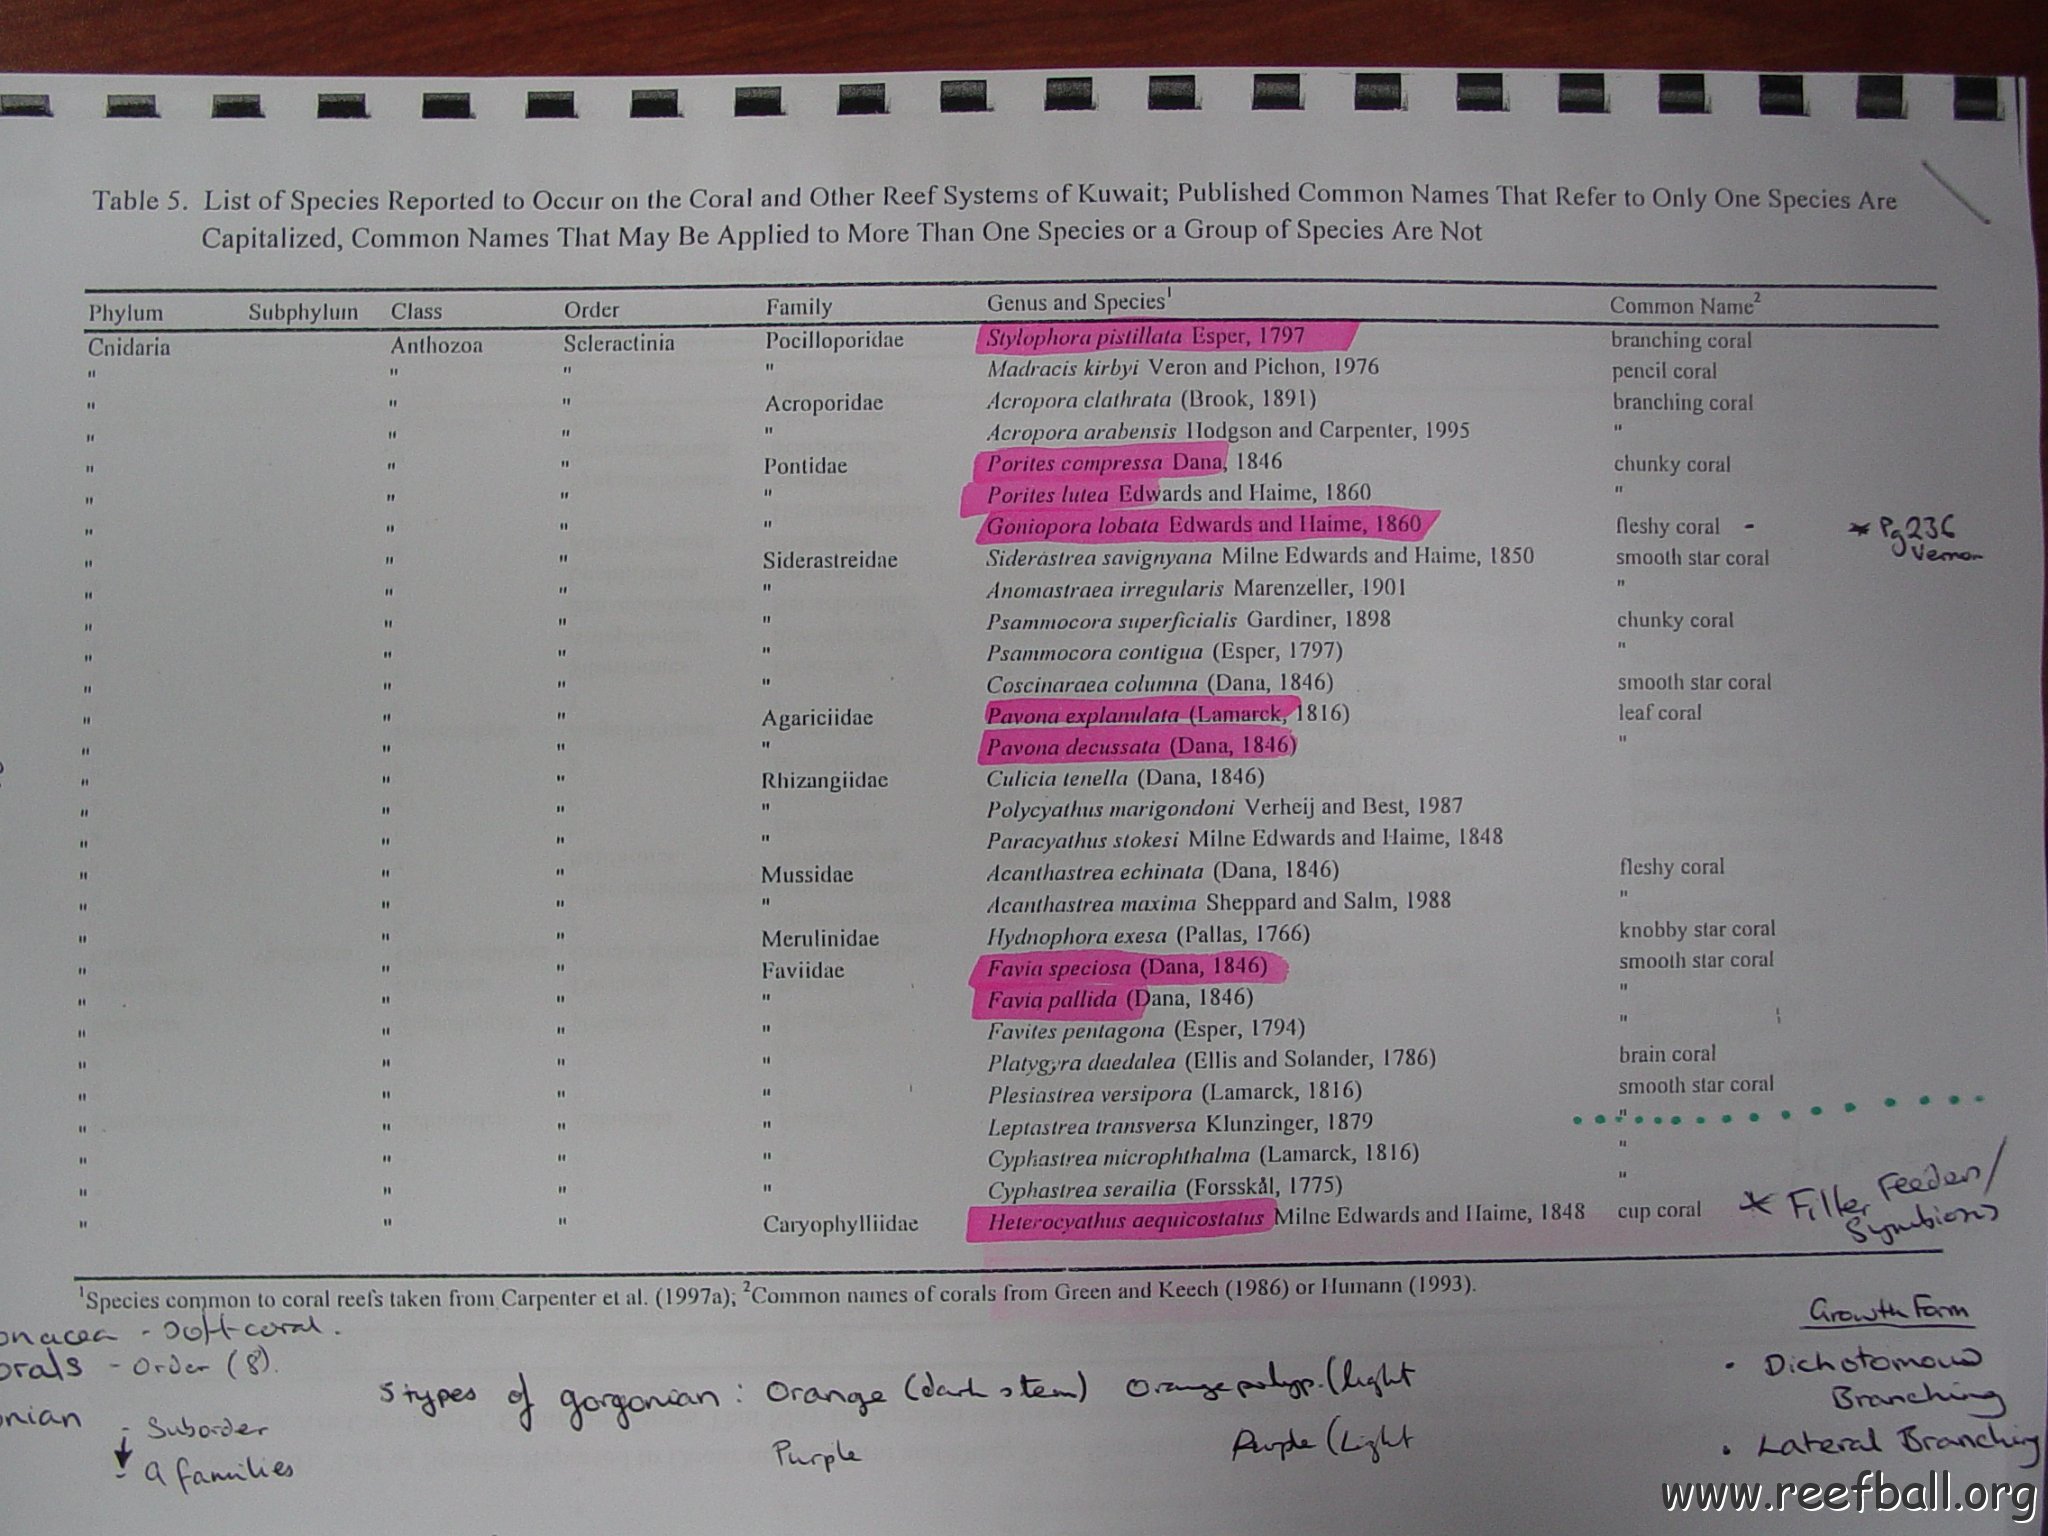 Table 5. List of Species Reported to Occur on the Coral and Other Reef Systems of Kuwait; Published Common Names That Refer to Only One Species Are
Capitalized, Common Names That May Be Applied to More Than One Species or a Group of Species Are Not
Phylum Subphylum Class Order Family Genus and Species¹ Common Name²
Cnidaria Anthozoa Scleractinia Pocilloporidae Stylophora pistillata Esper, 1797 branching coral
" " " " Madracis kirbyi Veron and Pichon, 1976 pencil coral
" " " Acroporidae Acropora clathrata (Brook, 1891) branching coral
" " " " Acropora arabensis Hodgson and Carpenter, 1995 "
" " " Pontidae Porites compressa Dana, 1846 chunky coral
" " " " Porites lutea Edwards and Haime, 1860 "
" " " " Goniopora lobata Edwards and Haime, 1860 fleshy coral - * Pg 236
Vernon
" " " Siderastreidae Siderastrea savignyana Milne Edwards and Haime, 1850 smooth star coral
" " " " Anomastraea irregularis Marenzeller, 1901 "
" " " " Psammocora superficialis Gardiner, 1898 chunky coral
" " " " Psammocora contigua (Esper, 1797) "
" " " " Coscinaraea columna (Dana, 1846) smooth star coral
" " " Agariciidae Pavona explanulata (Lamarck, 1816) leaf coral
" " " " Pavona decussata (Dana, 1846) "
" " " Rhizangiidae Culicia tenella (Dana, 1846)
" " " " Polycyathus marigondoni Verheij and Best, 1987
" " " " Paracyathus stokesi Milne Edwards and Haime, 1848
" " " Mussidae Acanthastrea echinata (Dana, 1846) fleshy coral
" " " " Acanthastrea maxima Sheppard and Salm, 1988 "
" " " Merulinidae Hydnophora exesa (Pallas, 1766) knobby star coral
" " " Faviidae Favia speciosa (Dana, 1846) smooth star coral
" " " " Favia pallida (Dana, 1846) "
" " " " Favites pentagona (Esper, 1794) "
" " " " Platygyra daedalea (Ellis and Solander, 1786) brain coral
" " " " Plesiastrea versipora (Lamarck, 1816) smooth star coral
" " " " Leptastrea transversa Klunzinger, 1879 "
" " " " Cyphastrea microphthalma (Lamarck, 1816) "
" " " " Cyphastrea serailia (Forsskål, 1775) "
" " " Caryophylliidae Heterocyathus aequicostatus Milne Edwards and Haime, 1848 cup coral * Filter Feeders/
Symbiosis
¹Species common to coral reefs taken from Carpenter et al. (1997a); ²Common names of corals from Green and Keech (1986) or Humann (1993).
onacea - Soft coral.
orals - Order (8).
onian - Suborder
- 9 families
5 types of gorgonian : Orange (dark stem) Orange polyp. (light
Purple Purple (Light
Growth Form
• Dichotomous
Branching
• Lateral Branching
www.reefball.org